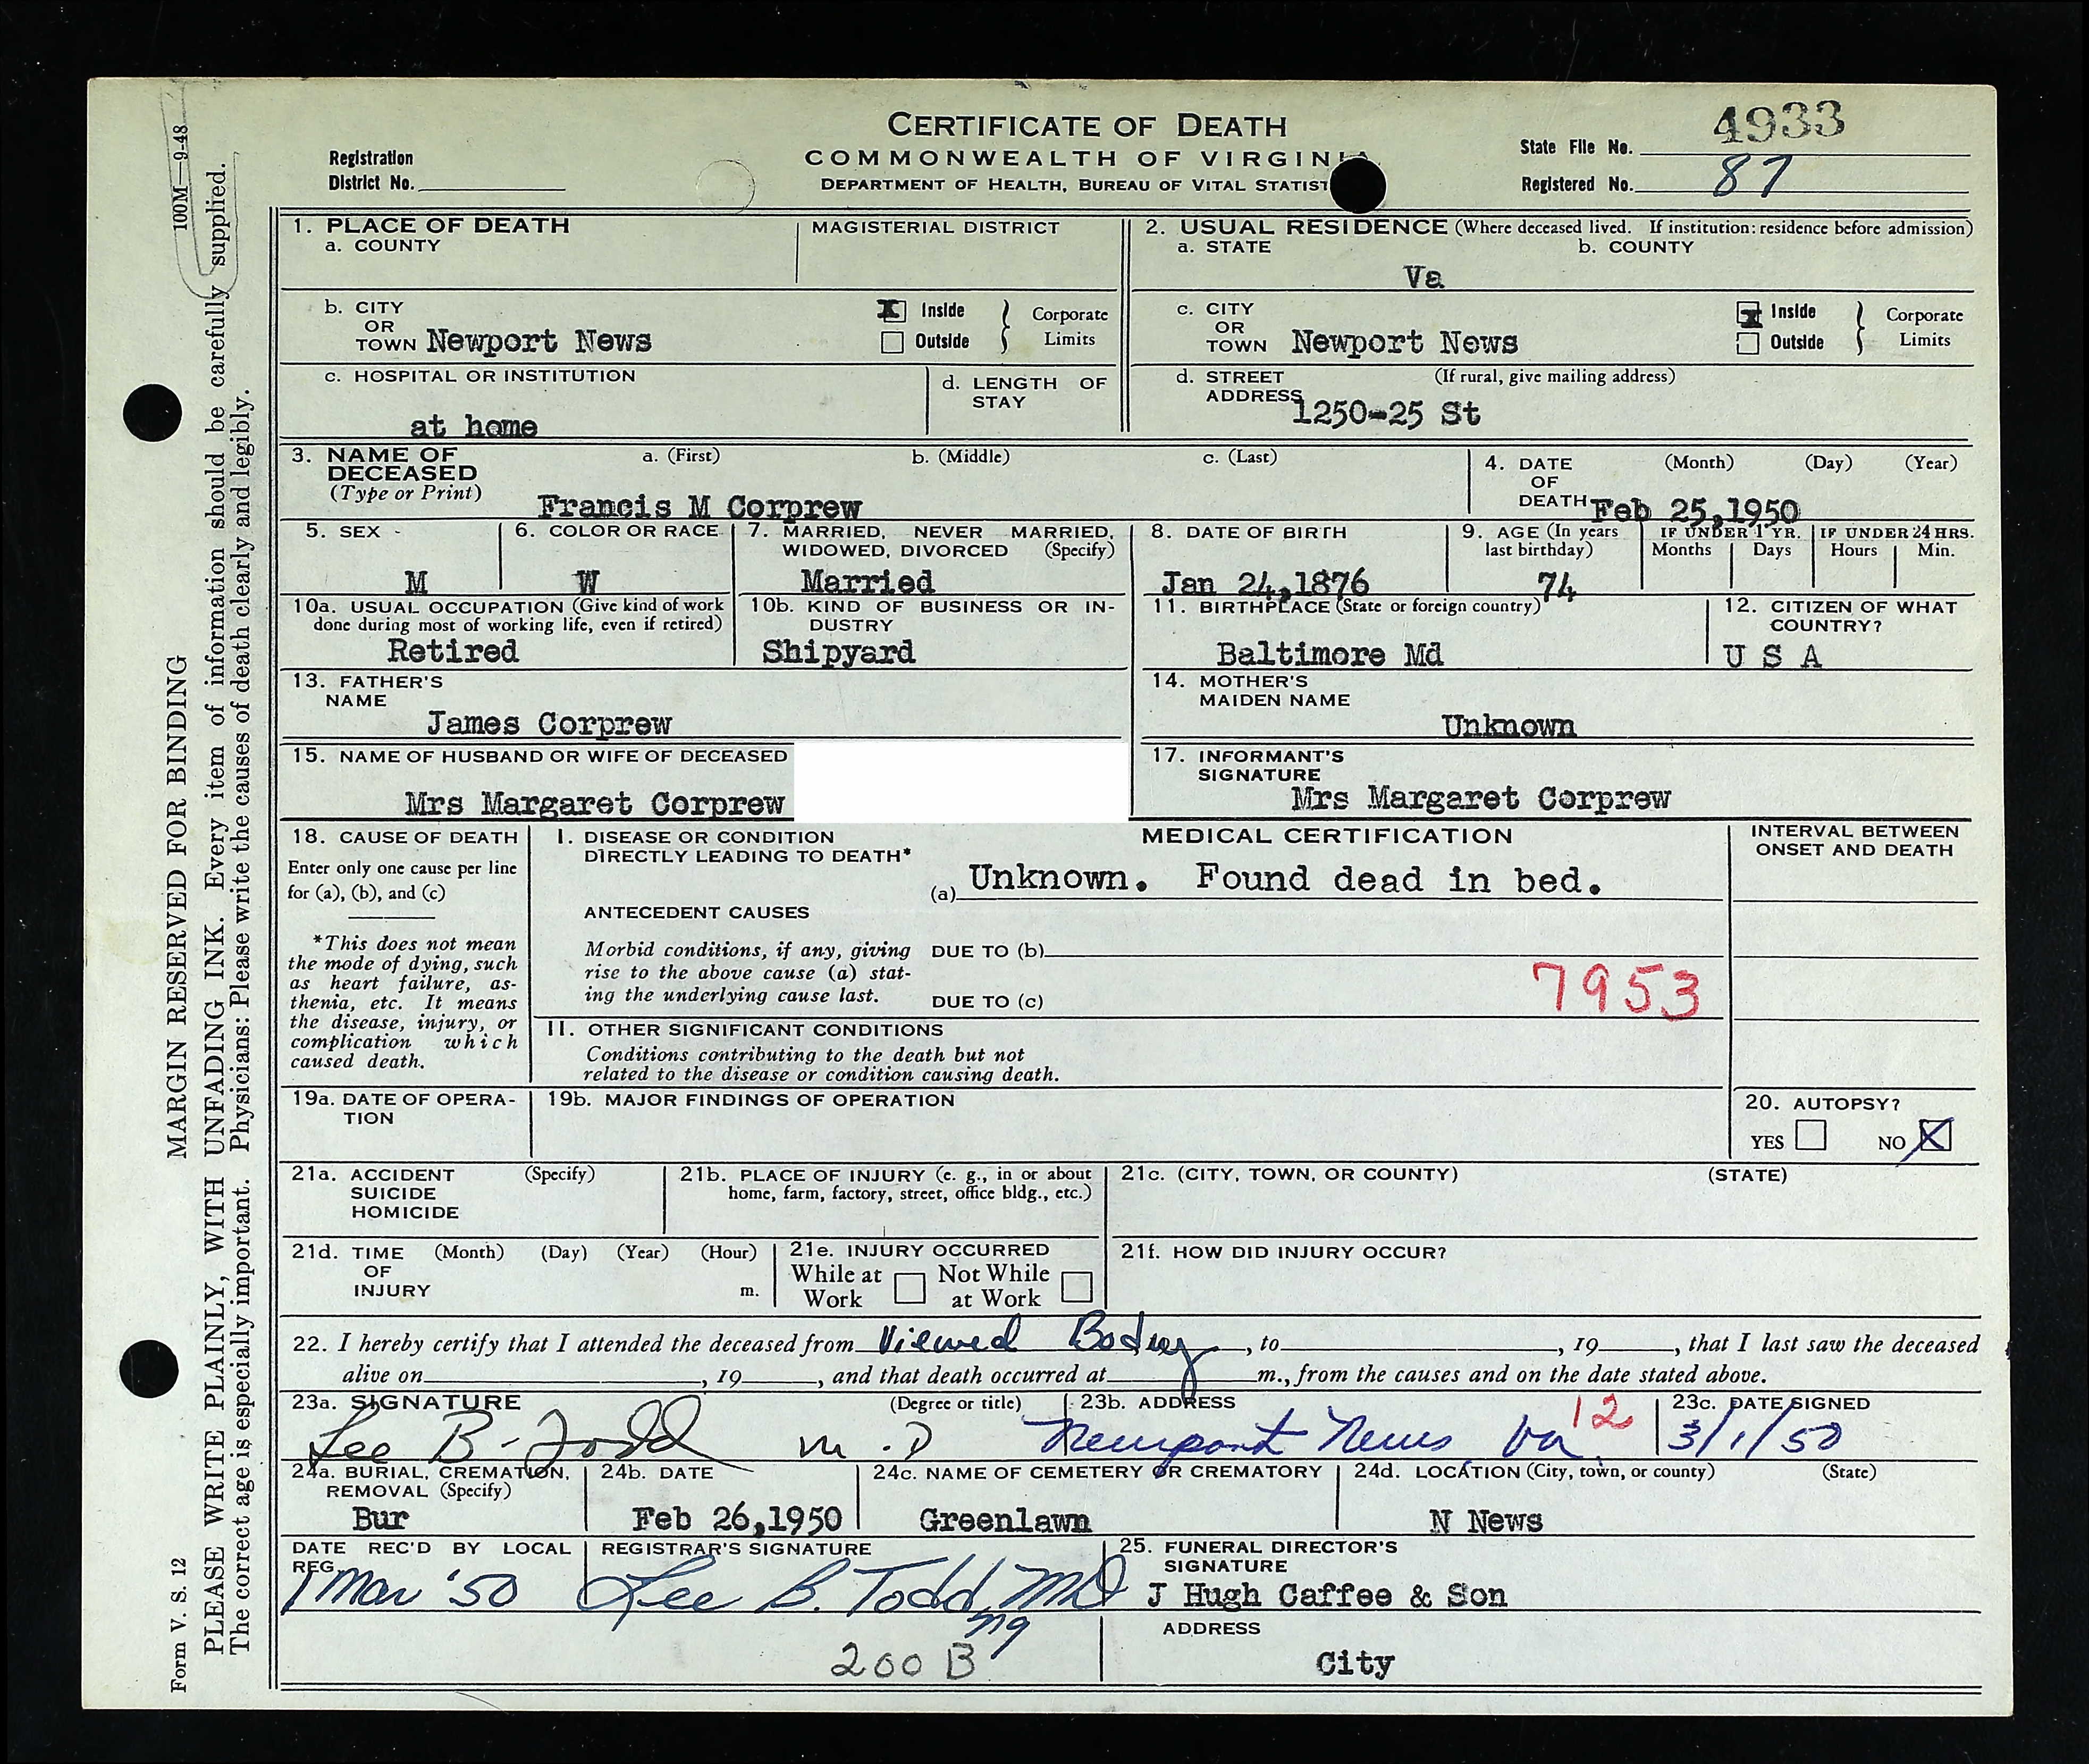 CERTIFICATE OF DEATH
4933
COMMONWEALTH OF VIRGINIA
State File No.
Registration
District No.
DEPARTMENT OF HEALTH, BUREAU OF VITAL STATIST
Registered No. 87
1. PLACE OF DEATH
a. COUNTY
MAGISTERIAL DISTRICT
2. USUAL RESIDENCE (Where deceased lived. If institution: residence before admission)
a. STATE b. COUNTY
Va
b. CITY OR TOWN Newport News
X Inside
Outside
Corporate Limits
c. CITY OR TOWN Newport News
X Inside
Outside
Corporate Limits
c. HOSPITAL OR INSTITUTION
at home
d. LENGTH OF STAY
d. STREET ADDRESS (If rural, give mailing address)
1250-25 St
3. NAME OF DECEASED (Type or Print)
a. (First) b. (Middle) c. (Last)
Francis M Corprew
4. DATE OF DEATH (Month) (Day) (Year)
Feb 25,1950
5. SEX
M
6. COLOR OR RACE
W
7. MARRIED, NEVER MARRIED, WIDOWED, DIVORCED (Specify)
Married
8. DATE OF BIRTH
Jan 24,1876
9. AGE (In years last birthday)
74
IF UNDER 1 YR.
Months Days
IF UNDER 24 HRS.
Hours Min.
10a. USUAL OCCUPATION (Give kind of work done during most of working life, even if retired)
Retired
10b. KIND OF BUSINESS OR INDUSTRY
Shipyard
11. BIRTHPLACE (State or foreign country)
Baltimore Md
12. CITIZEN OF WHAT COUNTRY?
U S A
13. FATHER'S NAME
James Corprew
14. MOTHER'S MAIDEN NAME
Unknown
15. NAME OF HUSBAND OR WIFE OF DECEASED
Mrs Margaret Corprew
17. INFORMANT'S SIGNATURE
Mrs Margaret Corprew
18. CAUSE OF DEATH
Enter only one cause per line for (a), (b), and (c)
*This does not mean the mode of dying, such as heart failure, asthenia, etc. It means the disease, injury, or complication which caused death.
MEDICAL CERTIFICATION
INTERVAL BETWEEN ONSET AND DEATH
I. DISEASE OR CONDITION DIRECTLY LEADING TO DEATH*
(a) Unknown. Found dead in bed.
ANTECEDENT CAUSES
Morbid conditions, if any, giving rise to the above cause (a) stating the underlying cause last.
DUE TO (b)
DUE TO (c)
7953
II. OTHER SIGNIFICANT CONDITIONS
Conditions contributing to the death but not related to the disease or condition causing death.
19a. DATE OF OPERATION
19b. MAJOR FINDINGS OF OPERATION
20. AUTOPSY?
YES NO X
21a. ACCIDENT SUICIDE HOMICIDE (Specify)
21b. PLACE OF INJURY (e. g., in or about home, farm, factory, street, office bldg., etc.)
21c. (CITY, TOWN, OR COUNTY) (STATE)
21d. TIME OF INJURY (Month) (Day) (Year) (Hour) m.
21e. INJURY OCCURRED
While at Work Not While at Work
21f. HOW DID INJURY OCCUR?
22. I hereby certify that I attended the deceased from Viewed Body, to , 19 , that I last saw the deceased
alive on , 19 , and that death occurred at m., from the causes and on the date stated above.
23a. SIGNATURE (Degree or title)
Lee B. Todd M.D
23b. ADDRESS
Newport News Va
12
23c. DATE SIGNED
3/1/50
24a. BURIAL, CREMATION, REMOVAL (Specify)
Bur
24b. DATE
Feb 26,1950
24c. NAME OF CEMETERY OR CREMATORY
Greenlawn
24d. LOCATION (City, town, or county) (State)
N News
DATE REC'D BY LOCAL REG.
1 Mar '50
REGISTRAR'S SIGNATURE
Lee B. Todd, MD
25. FUNERAL DIRECTOR'S SIGNATURE
J Hugh Caffee & Son
ADDRESS
City
200 B
100M—9-48
MARGIN RESERVED FOR BINDING
PLEASE WRITE PLAINLY, WITH UNFADING INK. Every item of information should be carefully supplied.
The correct age is especially important. Physicians: Please write the causes of death clearly and legibly.
Form V. S. 12